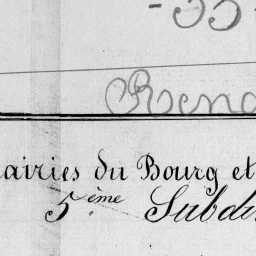 -33-
Rena
airies du Bourg et
5ème Subdi